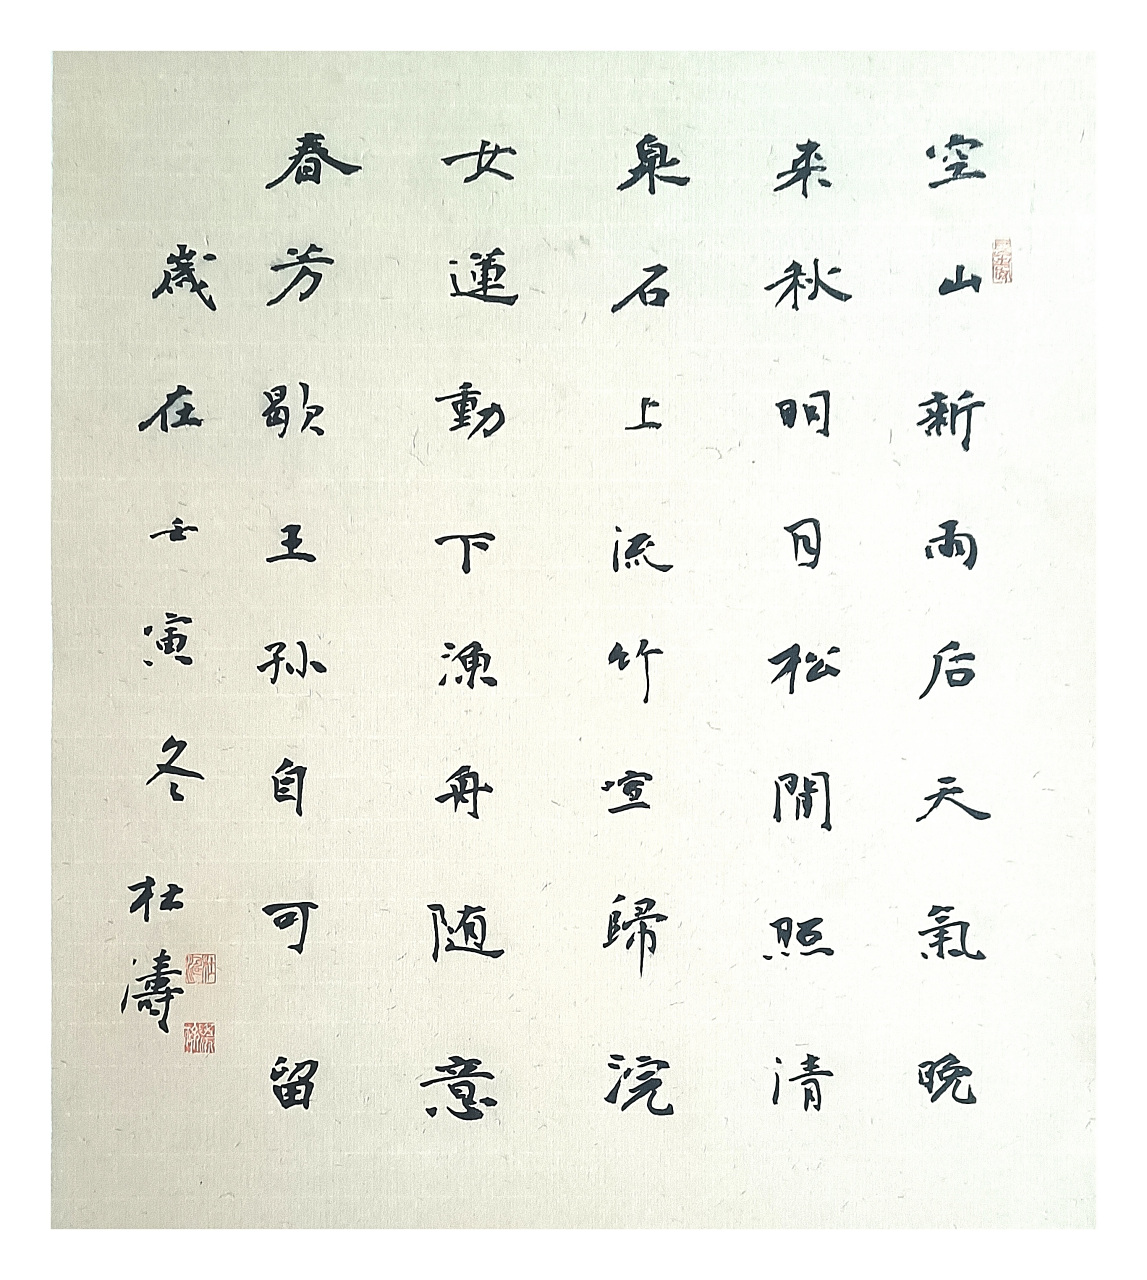 空山新雨后天氣晚
来秋明月松間照清
泉石上流竹喧歸浣
女蓮動下漁舟随意
春芳歇王孙自可留
歲在壬寅冬杜濤